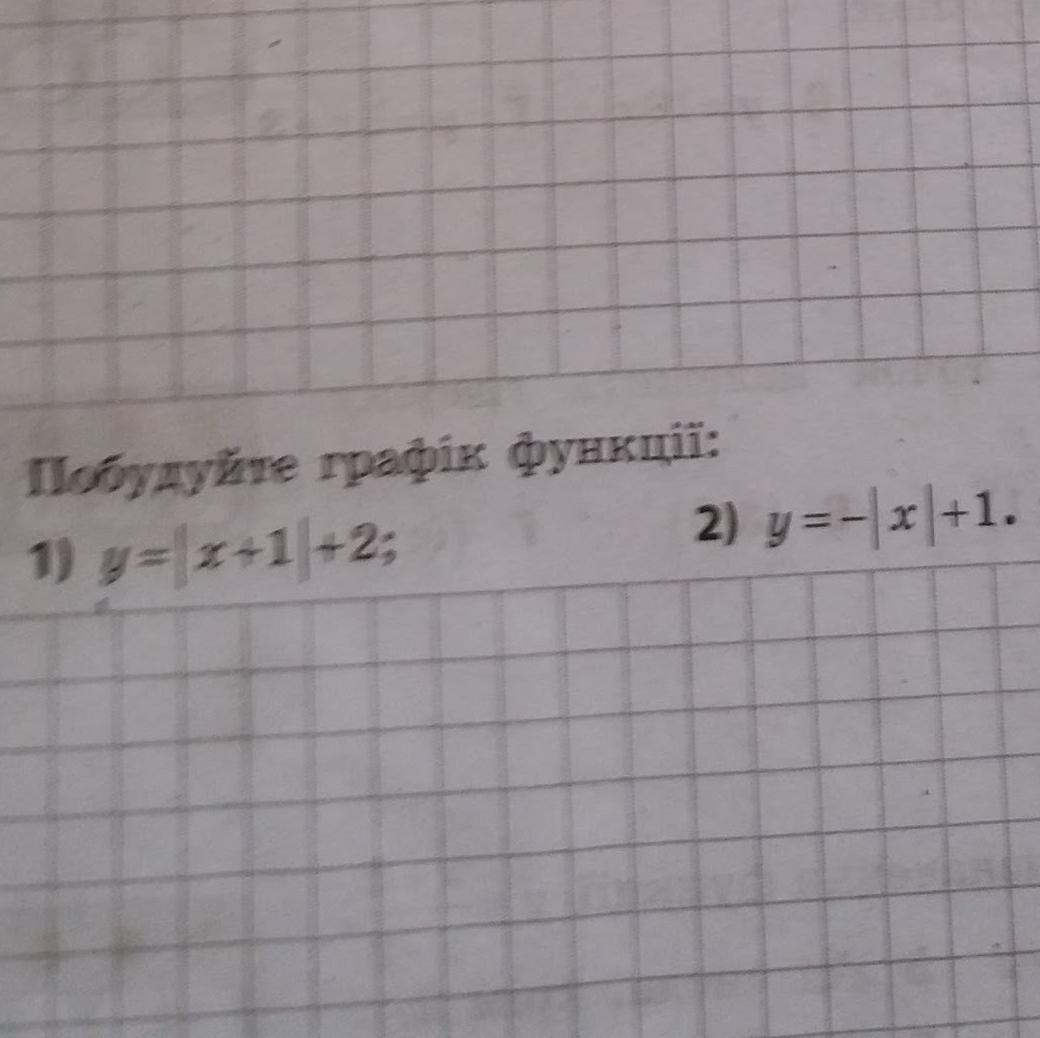 Побудуйте графік функції:
1) y=|x+1|+2; 2) y=-|x|+1.